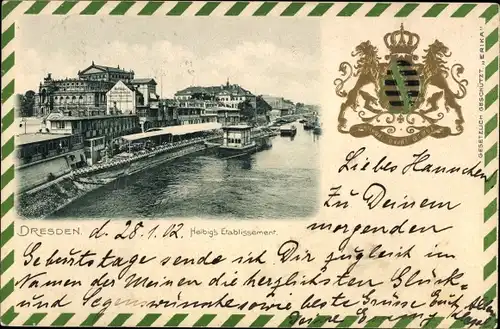 GESETZLICH GESCHÜTZT „ERIKA"
DRESDEN. d. 28.1.02. Helbig's Etablissement.
Liebes Hannchen
Zu Deinem
morgenden
Geburtstage sende ich Dir zugleich im
Namen der Meinen die herzlichsten Glück-
und Segenswünsche sowie beste Grüsse Euch Allen
Deine